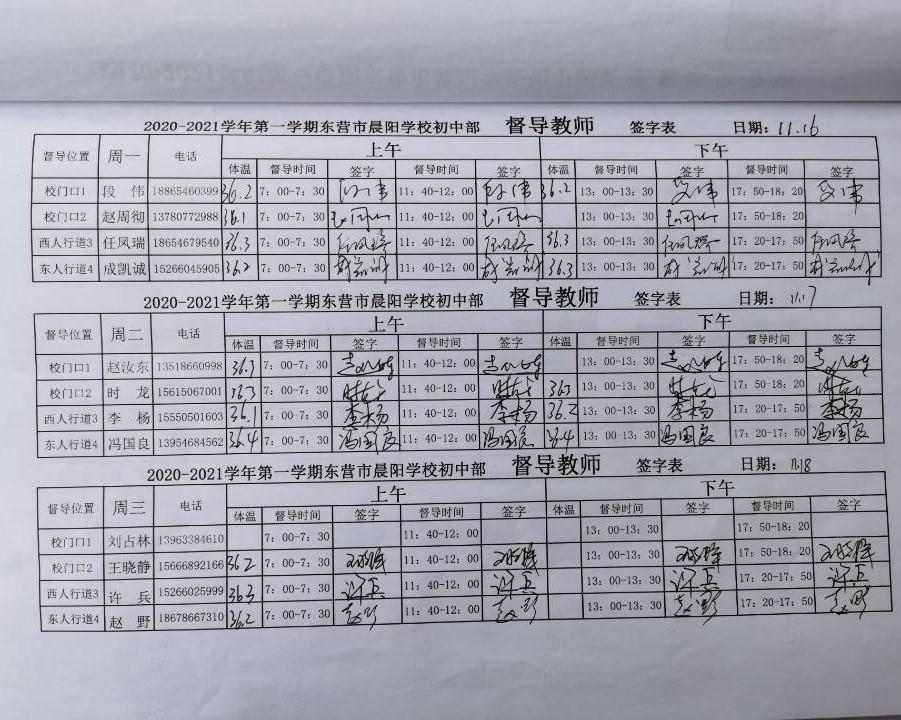 2020-2021学年第一学期东营市晨阳学校初中部 督导教师 签字表 日期：11.16
督导位置 周一 电话 上午 下午
体温 督导时间 签字 督导时间 签字 体温 督导时间 签字 督导时间 签字
校门口1 段 伟 18865460399 36.2 7：00-7：30 段伟 11：40-12：00 段伟 36.2 13：00-13：30 段伟 17：50-18：20 段伟
校门口2 赵周彻 13780772988 36.1 7：00-7：30 11：40-12：00 13：00-13：30 17：50-18：20
西人行道3 任凤瑞 18654679540 36.3 7：00-7：30 任凤瑞 11：40-12：00 任凤瑞 36.3 13：00-13：30 任凤瑞 17：20-17：50 任凤瑞
东人行道4 成凯诚 15266045905 36.2 7：00-7：30 成凯诚 11：40-12：00 成凯诚 36.3 13：00-13：30 成凯诚 17：20-17：50 成凯诚
2020-2021学年第一学期东营市晨阳学校初中部 督导教师 签字表 日期：11.17
督导位置 周二 电话 上午 下午
体温 督导时间 签字 督导时间 签字 体温 督导时间 签字 督导时间 签字
校门口1 赵汝东 13518660998 7：00-7：30 赵汝东 11：40-12：00 赵汝东 13：00-13：30 赵汝东 17：50-18：20 赵汝东
校门口2 时 龙 15615067001 36.3 7：00-7：30 时龙 11：40-12：00 时龙 36.3 13：00-13：30 时龙 17：50-18：20 时龙
西人行道3 李 杨 15550501603 36.1 7：00-7：30 李杨 11：40-12：00 李杨 36.2 13：00-13：30 李杨 17：20-17：50 李杨
东人行道4 冯国良 13954684562 36.4 7：00-7：30 冯国良 11：40-12：00 冯国良 36.4 13：00-13：30 冯国良 17：20-17：50 冯国良
2020-2021学年第一学期东营市晨阳学校初中部 督导教师 签字表 日期：11.18
督导位置 周三 电话 上午 下午
体温 督导时间 签字 督导时间 签字 体温 督导时间 签字 督导时间 签字
校门口1 刘占林 13963384610 7：00-7：30 11：40-12：00 13：00-13：30 17：50-18：20
校门口2 王晓静 15666892166 36.2 7：00-7：30 王晓静 11：40-12：00 王晓静 13：00-13：30 王晓静 17：50-18：20 王晓静
西人行道3 许 兵 15266025999 36.3 7：00-7：30 许兵 11：40-12：00 许兵 13：00-13：30 许兵 17：20-17：50 许兵
东人行道4 赵 野 18678667310 36.2 7：00-7：30 赵野 11：40-12：00 赵野 13：00-13：30 赵野 17：20-17：50 赵野